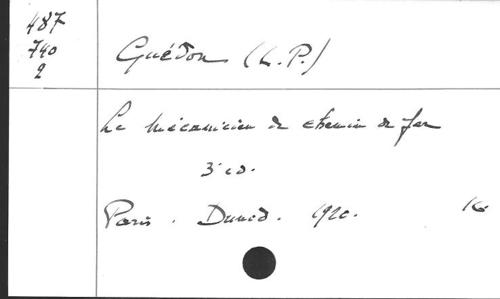 487
740
2
Guédon (L. P.)
Le mécanicien de chemin de fer
3e éd.
Paris. Dunod. 1920. 16